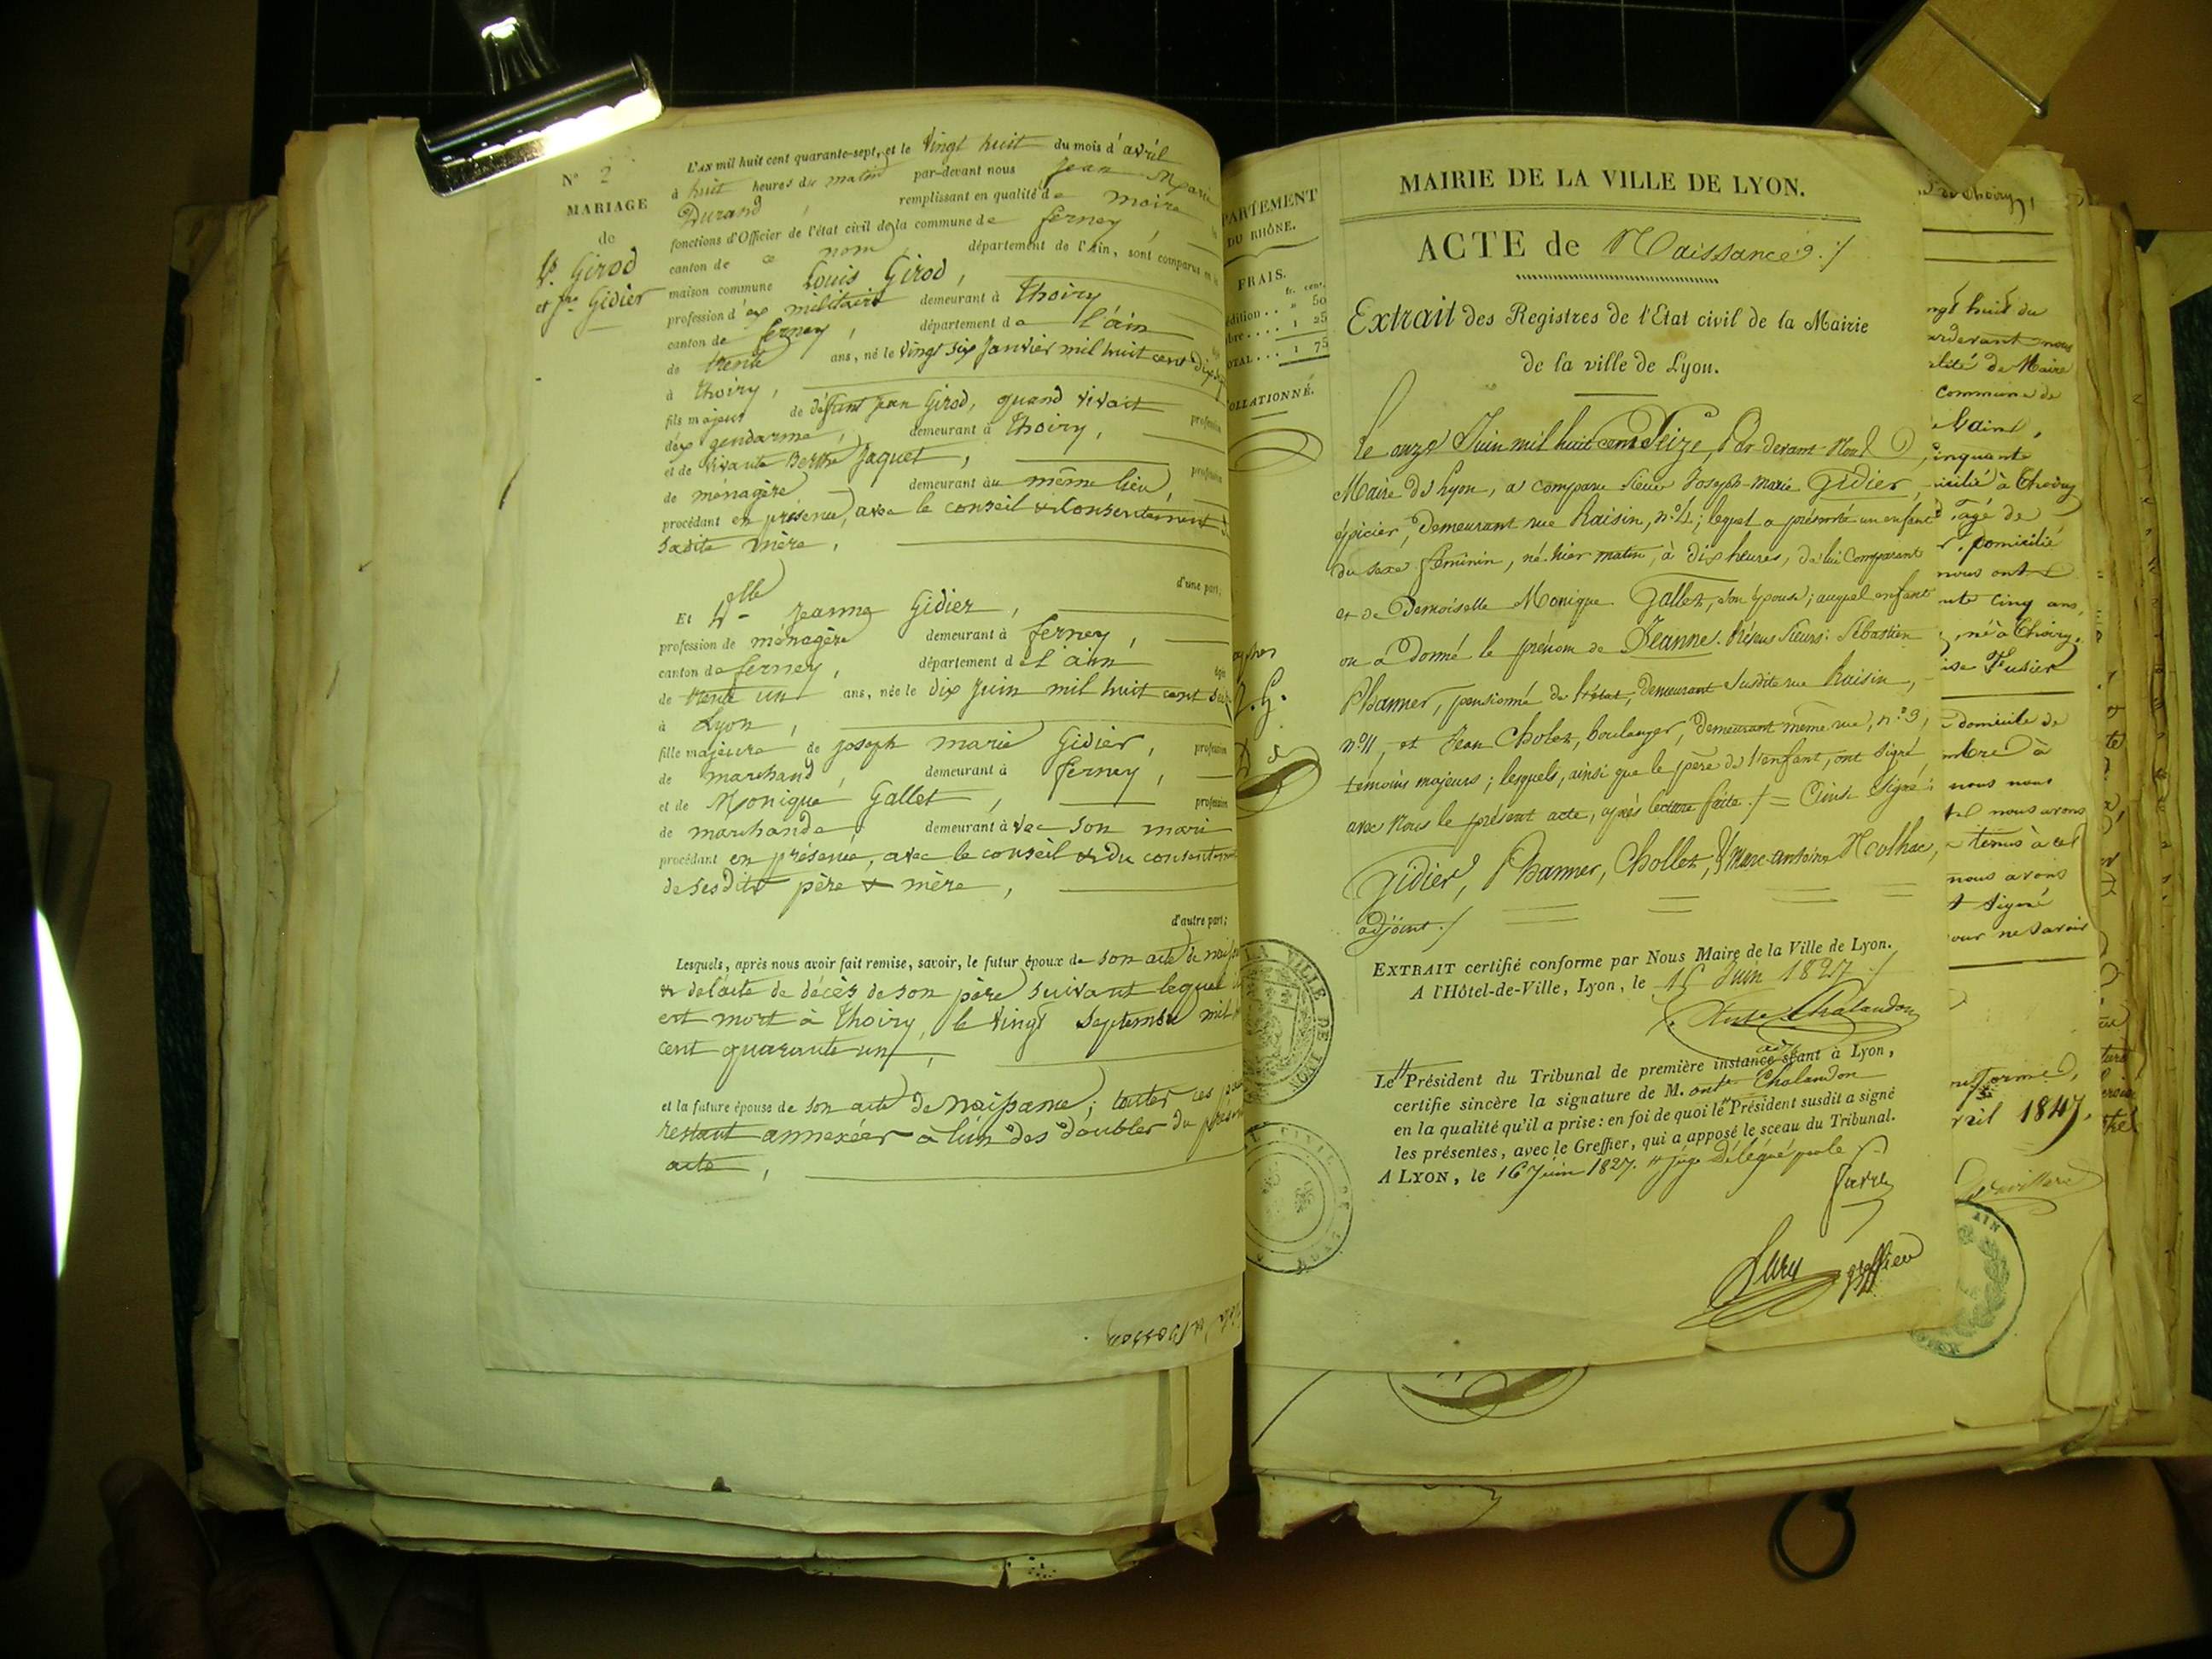 N° 2
MARIAGE
de
Ls. Girod
et Jne Gidier
L'an mil huit cent quarante-sept, et le Vingt huit du mois d'avril
à huit heures du matin par-devant nous Jean Marie
Durand, remplissant en qualité de maire
fonctions d'Officier de l'état civil de la commune de ferney,
canton de ce nom, département de l'Ain, sont comparus en la
maison commune Louis Girod,
profession d'ex militaire demeurant à Thoiry,
canton de ferney, département de l'ain
de trente ans, né le Vingt six Janvier mil huit cent dix sept
à Thoiry,
fils majeur de défunt Jean Girod, quand vivait profession
d'ex gendarme, demeurant à Thoiry,
et de vivante Berthe Jaquet, profession
de ménagère demeurant au même lieu,
procédant en présence, avec le conseil & consentement de
sadite mère,
d'une part;
Et Dlle Jeanne Gidier,
profession de ménagère demeurant à ferney,
canton de ferney, département de l'ain âgée
de trente un ans, née le dix Juin mil huit cent seize
à Lyon,
fille majeure de Joseph marie Gidier, profession
de marchand, demeurant à ferney,
et de Monique Gallet, profession
de marchande demeurant avec son mari
procédant en présence, avec le conseil & du consentement
de sesdits père & mère,
d'autre part;
Lesquels, après nous avoir fait remise, savoir, le futur époux de son acte de
& de l'acte de décès de son père suivant lequel
est mort à Thoiry, le vingt septembre mil
cent quarante un,
et la future épouse de son acte de naissance; toutes ces
restant annexées à l'un des doubles du présent
acte,
PARTEMENT
DU RHÔNE.
FRAIS.
fr. cent.
édition . . » 50
bre . . . . 1 25
OTAL . . . 1 75
OLLATIONNÉ.
MAIRIE DE LA VILLE DE LYON.
ACTE de Naissance ./
Extrait des Registres de l'Etat civil de la Mairie
de la ville de Lyon.
Le onze Juin mil huit cent Seize, Par-devant Nous
Maire de Lyon, a comparu sieur Joseph-Marie Gidier,
épicier, demeurant rue Raisin, n°. 4; lequel a présenté un enfant
du sexe féminin, né hier matin, à dix heures, de lui Comparant
et de Demoiselle Monique Gallet, son épouse; auquel enfant
on a donné le prénom de Jeanne. Présens Sieurs: Sébastien
Phanner, pensionné de l'état, demeurant susdite rue Raisin,
n°. 11, et Jean Cholet, boulanger, demeurant même rue, n°. 3,
témoins majeurs; lesquels, ainsi que le père de l'enfant, ont signé
avec Nous le présent acte, après lecture faite ./ = Ainsi signé:
Gidier, Phanner, Chollet, & Marc-antoine Nolhac,
adjoint ./
EXTRAIT certifié conforme par Nous Maire de la Ville de Lyon.
A l'Hôtel-de-Ville, Lyon, le 15 Juin 1827 ./
Chalandon
Le Président du Tribunal de première instance séant à Lyon,
certifie sincère la signature de M. ant. Chalandon
en la qualité qu'il a prise: en foi de quoi le Président susdit a signé
les présentes, avec le Greffier, qui a apposé le sceau du Tribunal.
A LYON, le 16 Juin 1827. Juge Délégué
greffier
LA VILLE DE LYON
de Thoiry
ngt huit du
ardevant nous
alité de Maire
commune de
l'ain,
cinquante
icilié à Thoiry
âgé de
domicilié
nous ont
nte cinq ans,
né à Thoiry,
domicile de
nous nous
nous avons
tenus à cet
nous avons
signé
pour ne savoir
onforme,
vril 1847.
AIN